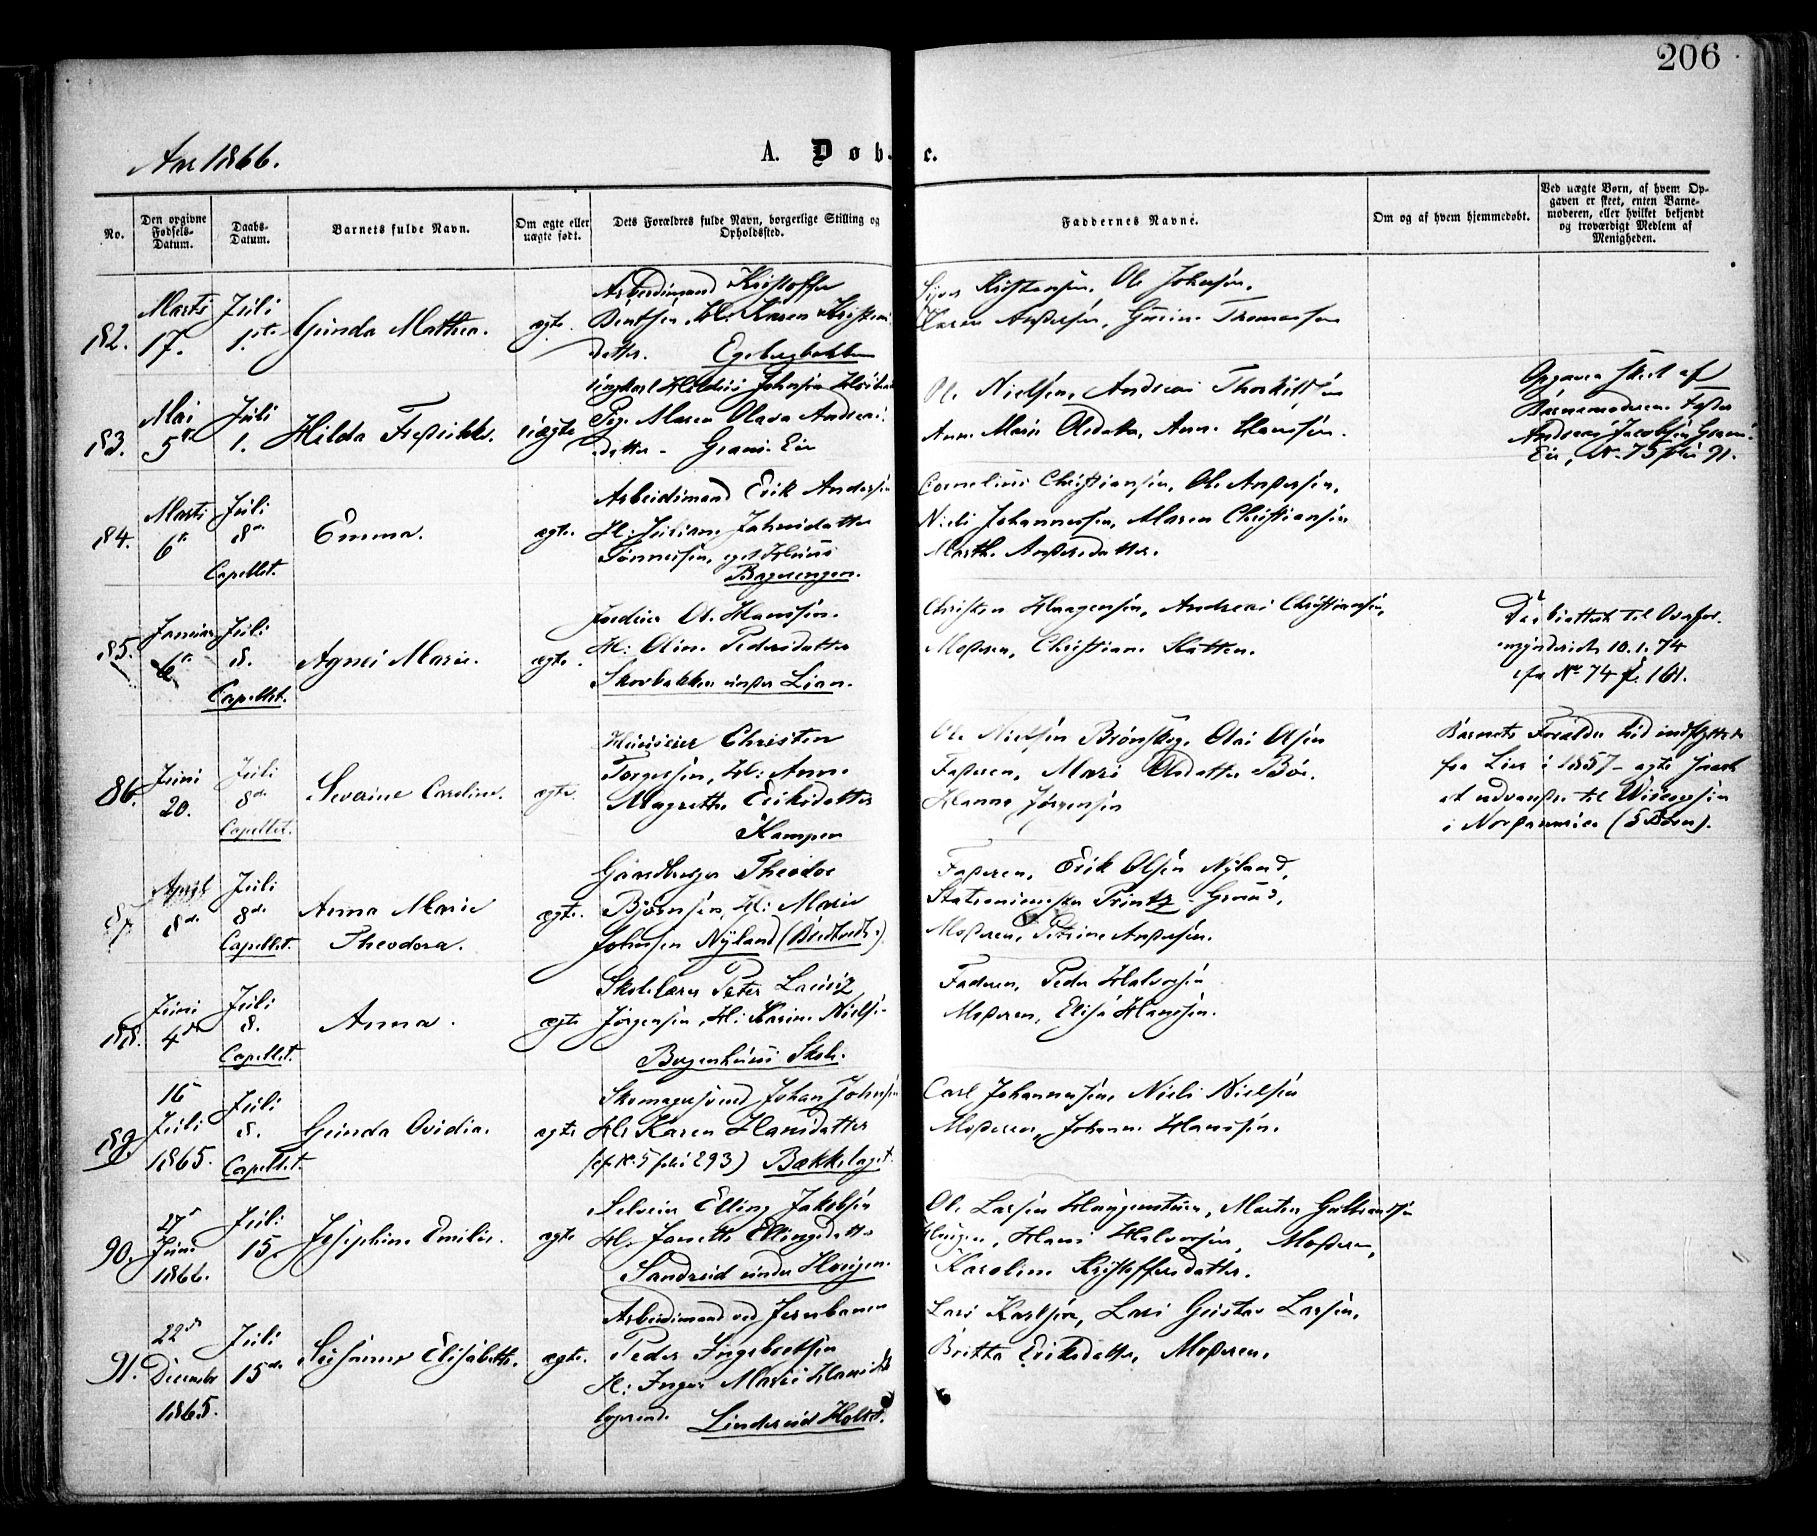 206
Aar 1866.
A. Døbte.
No.
Den opgivne Fødsels-Datum.
Daabs-Datum.
Barnets fulde Navn.
Om ægte eller uægte født.
Dets Forældres fulde Navn, borgerlige Stilling og Opholdssted.
Faddernes Navne.
Om og af hvem hjemmedøbt.
Ved uægte Børn, af hvem Opgaven er skeet, enten Barnemoderen, eller hvilket bekjendt og troværdigt Medlem af Menigheden.
82.
Marts
17.
Juli
1.
Gunda Mathea.
ægte.
Arbeidsmand Kristoffer
Berntsen, H: Karen Kristens
datter. Egebergbakken
Kristensen, Ole Johnsen,
Karen Andersen, Thomassen
83.
Mai
5
Juli
1.
Hilda Fredrikke.
uægte
Ungkarl Johnsen
Pige Maren Olava Andreas
datter -
Ole Nielsen, Andreas Thorkildsen
Anne Marie Olsdatter, Anne Hansen.
Opgaven skeet af
Barnemoderens Fader
Andreas Jacobsen
84.
Marts
6
Juli
8de
Capellet.
Emma.
ægte.
Arbeidsmand Erik Andersen
H: Juliane
Tønnesen, eget Huus
Cornelius Christiansen, Ole Andersen,
Niels Johannessen, Maren Christiansen
Marthe Andersdatter.
85.
Januar
6
Juli
8.
Capellet.
Agnes Marie.
ægte.
Ol. Hansen.
H: Oline Pedersdatter
Skovbakken under Lian.
Christen Haagensen, Andreas Christiansen,
Moderen, Christiane Hatten.
10.1.74
No 74 f. 161.
86.
Juni
20.
Juli
8de
Capellet.
Sevaine Caroline.
ægte.
Huuseier Christen
Torgersen, H: Anne
Magrethe Eriksdatter
Kampen
Ole Nielsen Brønskog, Olai Olsen
Faderen, Mari Olsdatter Bøe.
Hanna Jørgensen
Barnets Forældre hid indflyttede
fra Lier i 1857 - agte
at udvandre til Wisconsin
i Nordamerica (5 Børn).
87
April
8de
Juli
8de
Capellet.
Anna Marie
Theodora.
ægte.
Gaardbruger Theodor
Bjørnsen, H: Marie
Johnsen Nyland
Faderen, Erik Olsen Nyland,
Stationsmester Printz Grorud,
Moderen, Petrine Andersen.
88.
Juni
4de
Juli
8.
Capellet.
Anna.
ægte
Skolelærer Peter
Jørgensen, H: Karine Nielsen
Skole.
Faderen, Peder Halvorsen
Moderen, Elise Hansen.
89.
16
Juli
1865.
Juli
8.
Capellet.
Gunda Ovidia.
ægte
Skomagersvend Johan Johnsen
H: Karen Hansdatter
(cf. No 5 folio 293) Bækkelaget.
Carl Johannesen, Niels Nielsen
Moderen, Johanne Hansen.
90.
27
Juni
1866.
Juli
15.
Josephine Emilie.
ægte
Selveier Elling Jakobsen
H: Janette Ellingsdatter
Sandreid under Haugen.
Ole Larsen Haugenstuen, Morten Gulbrandsen
Haugen, Hans Halvorsen, Moderen,
Karoline Kristoffersdatter.
91.
22de
December
1865.
Juli
15de
Susanne Elisabeth.
ægte.
Arbeidsmand ved Jernbanen
Peder Ingebretsen
H: Inger Marie Hansdtr
Linderud
Lars Karlsen, Lars Gustav Larsen,
Britta Eriksdatter, Moderen.